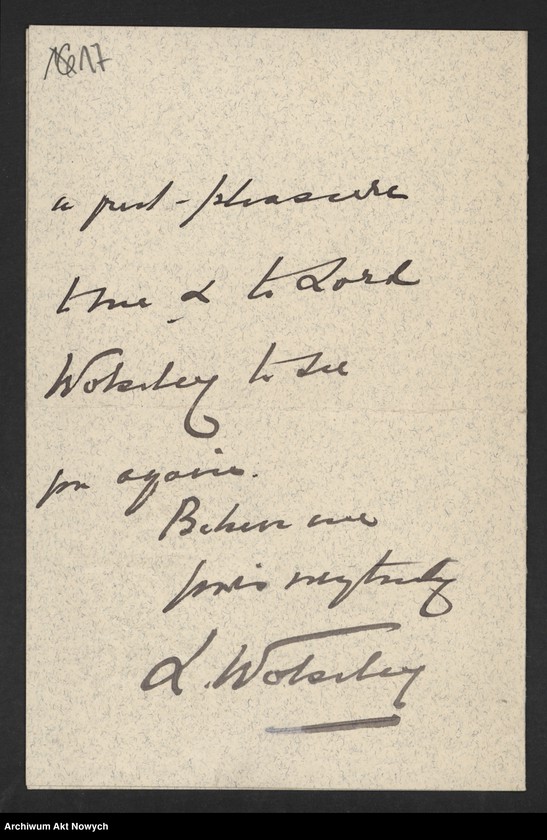 1617
a great pleasure
to me & to Lord
Wolseley to see
you again.
Believe me
yours very truly
L. Wolseley
Archiwum Akt Nowych